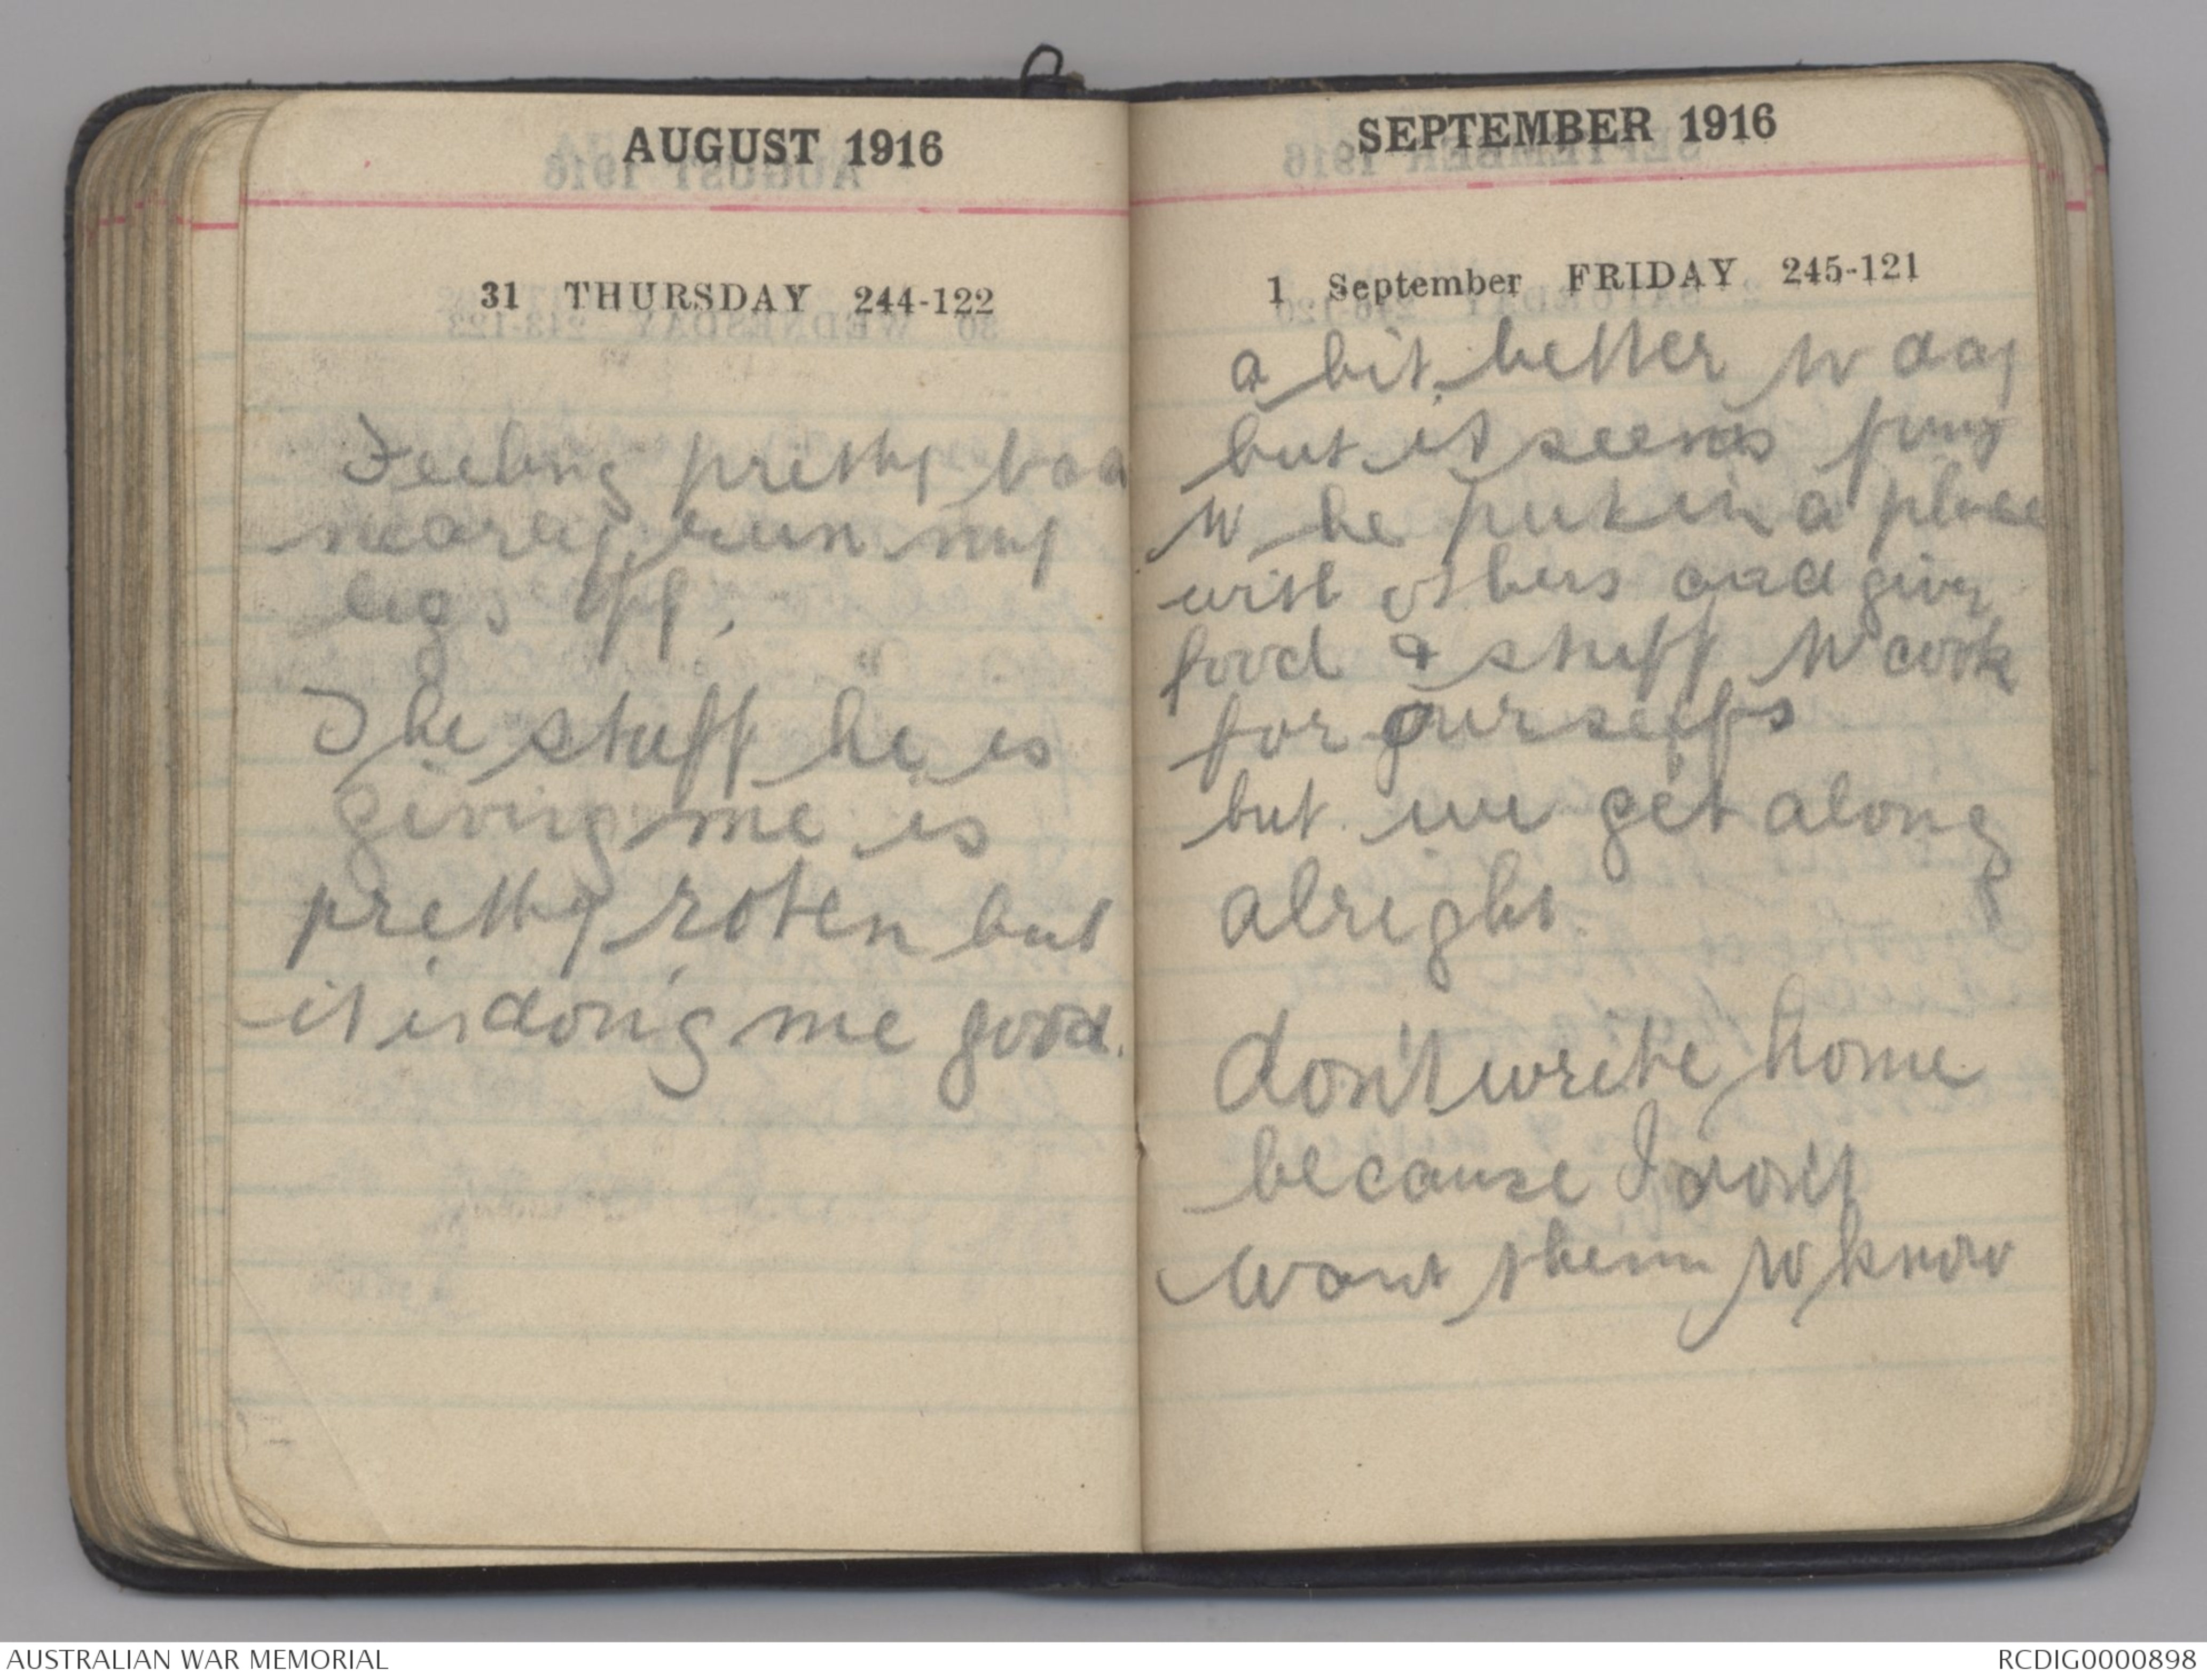 AUGUST 1916
31 THURSDAY 244-122
Feeling pretty bad
nearly run my
legs off.
The stuff he is
giving me is
pretty roten but
it is doing me good.
SEPTEMBER 1916
1 September FRIDAY 245-121
a bit better to day
but it seems funy
to be put in a place
with others and given
food & stuff to cook
for ourselfs
but we get along
alright.
don't write home
because I don't
want them to know
AUSTRALIAN WAR MEMORIAL
RCDIG0000898